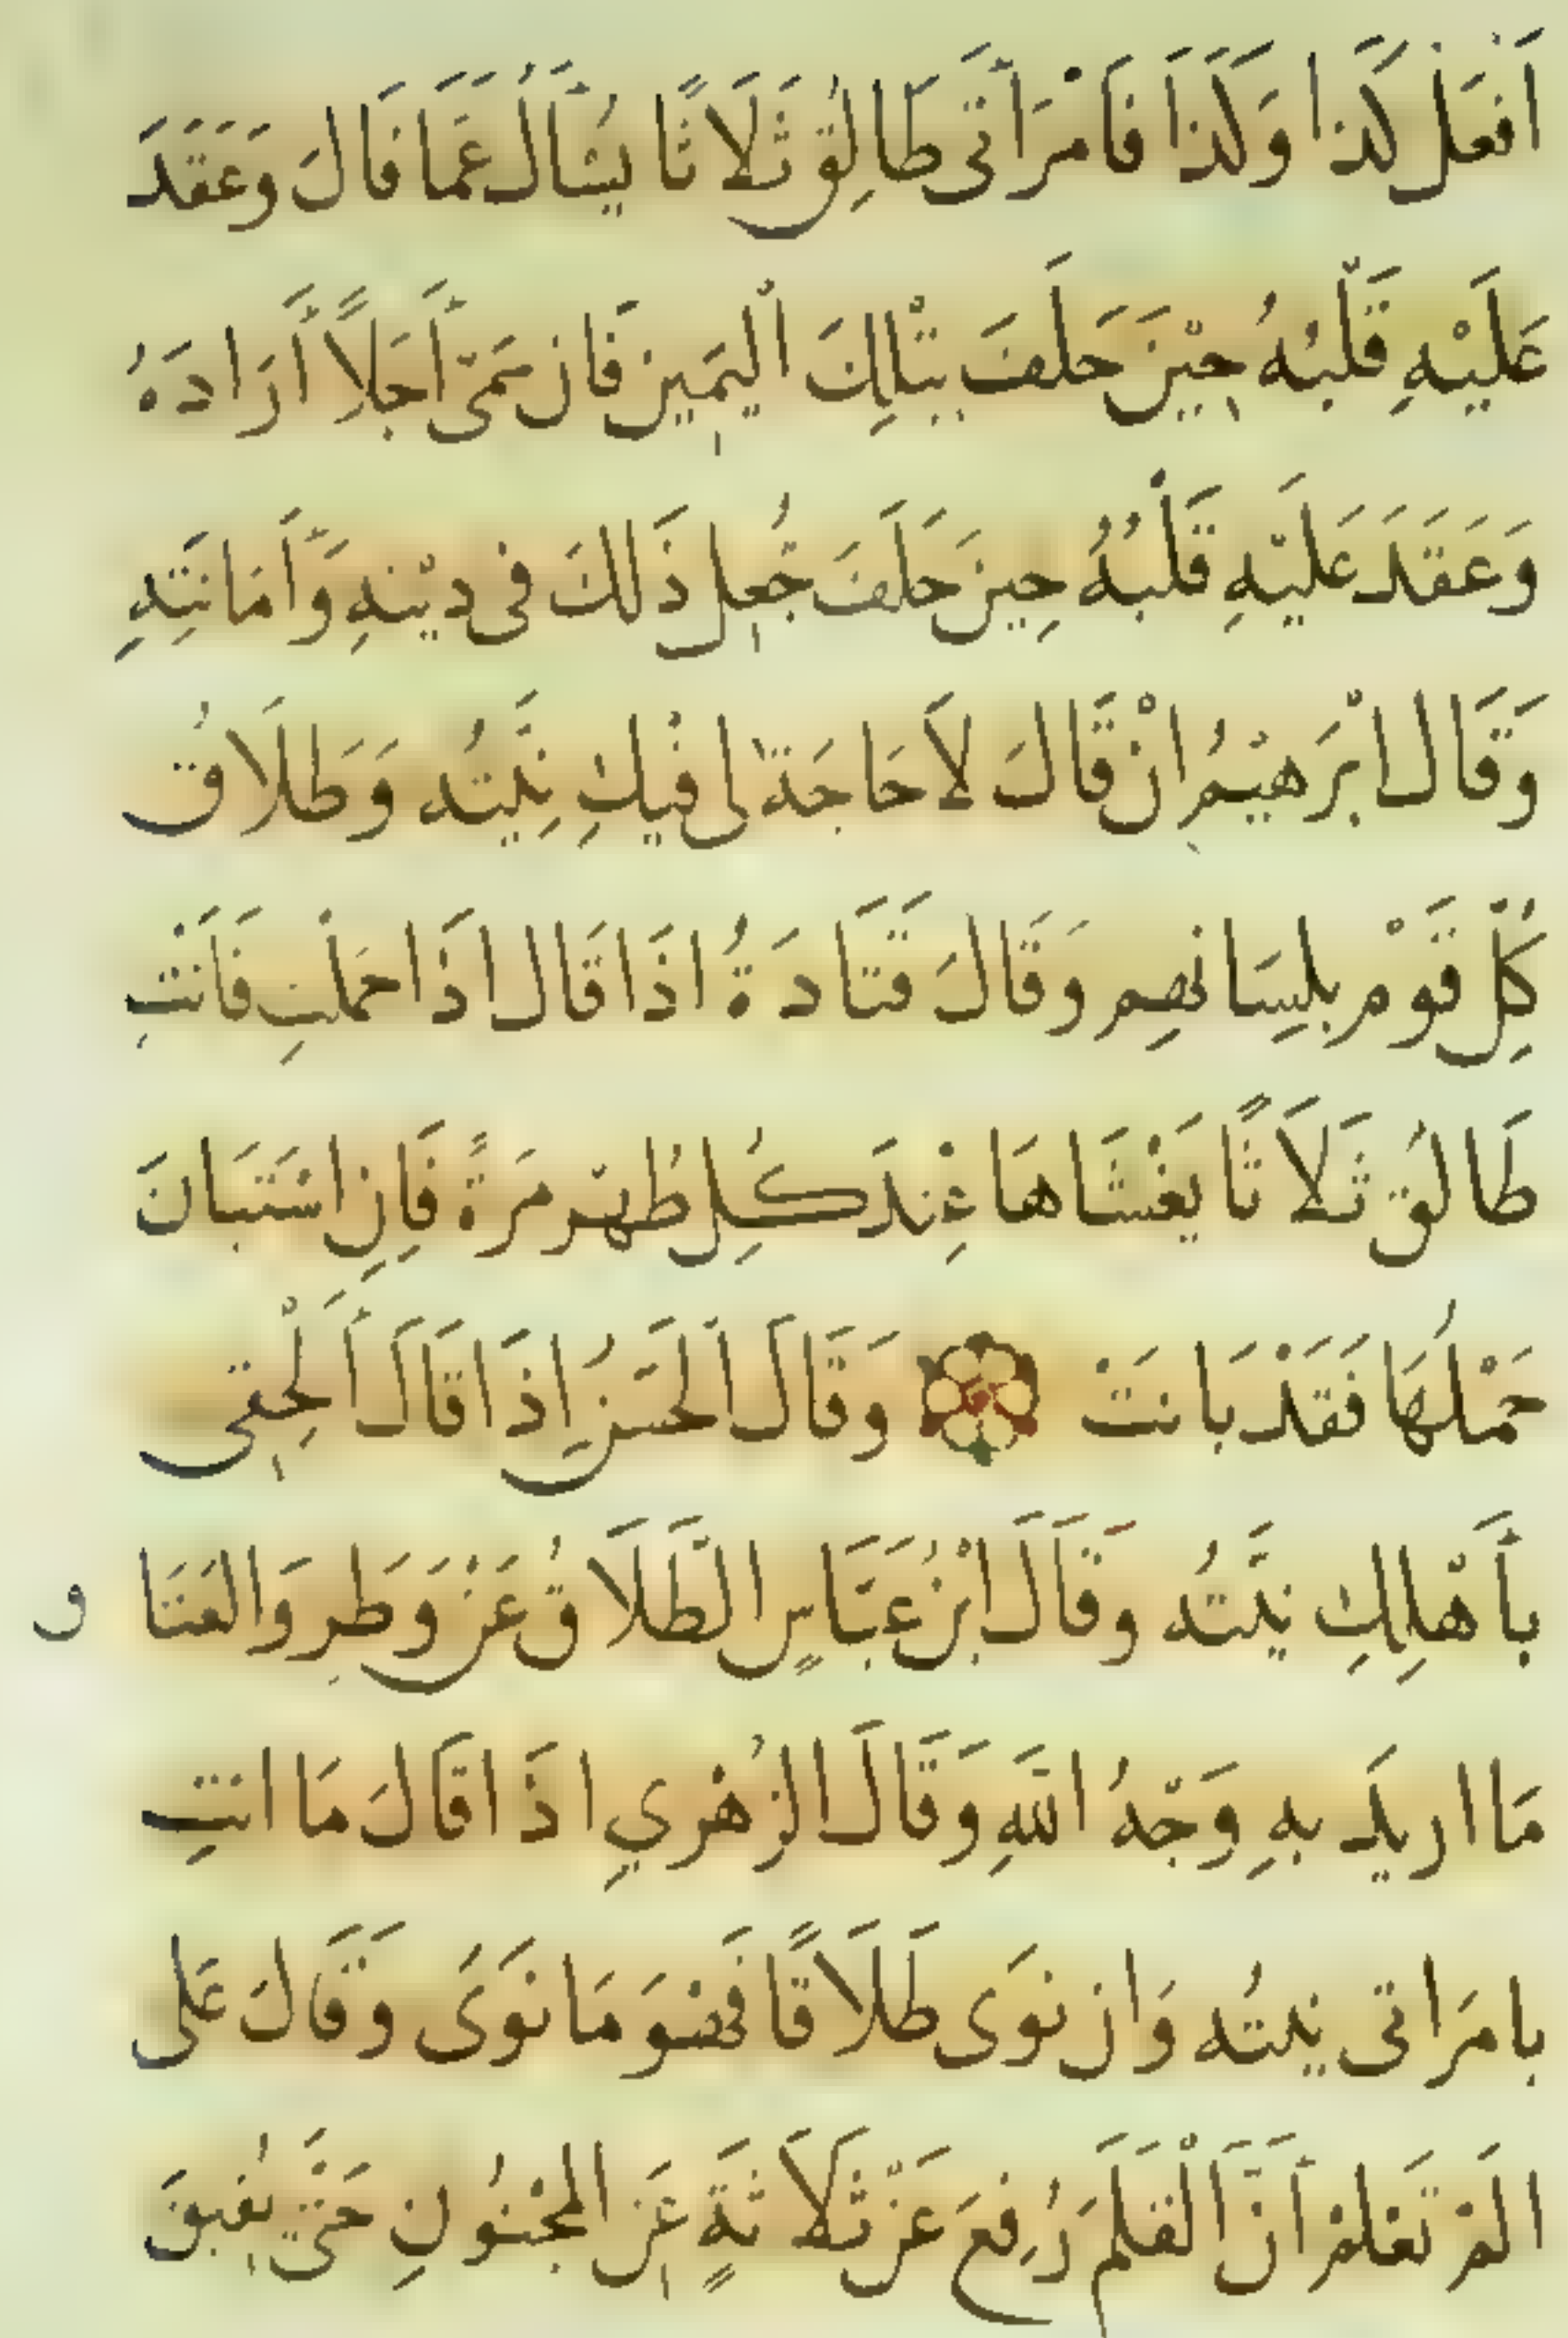 اَفْعَلْ كَذَا وَكَذَا فَامْرَأَتِى طَالِقٌ ثَلَاثًا يُسْأَلُ عَمَّا قَالَ وَعَقَدَ
عَلَيْهِ قَلْبُهُ حِيْنَ حَلَفَ بِتِلْكَ الْيَمِينِ فَانْ سَمَّى أَجَلاً أَرَادَهُ
وَعَقَدَ عَلَيْهِ قَلْبُهُ حِينَ حَلَفَ جُعِلَ ذَلكَ فى دِيْنِهِ وَأَمَانَتِهِ
وَقَالَ ابْرَهيْمُ انْ قَالَ لاَ حَاجَةَ لى فيْكِ نِيَّتُه وَطَلَاقُ
كُلِّ قَوْمٍ بلِسَانهِم وَقَالَ قَتَادَةُ اذَا قَال اذَا حَمَلْتِ فَانْتِ
طَالقٌ ثَلاَثًا يَغْشَاهَا عِنْدَ كُلِّ طُهْرٍ مَرَةً فَاِنِ اسْتَبَانَ
حَمْلُهَا فَقَدْ بَانَتْ وَقَالَ الْحَسَنُ اِذَا قَالَ اَلْحِقِى
بأَهْلِكِ نيَّتُه وَقَالَ ابْنُ عَبَّاسٍ الطَّلَاقُ عَنْ وَطَرٍ وَالعَتَا
ق
مَا اريدَ بهِ وَجْهُ اللّهِ وَقَالَ الزُهْرِي اذَا قَالَ مَا انتِ
بامرَاتى نيتُه وَان نوَى طَلَاقًا فَهُوَ مَا نَوَى وَقَالَ عَلى
الَمْ تَعْلَمْ أَنَّ اَلْقَلَمَ رُفِعَ عَنْ ثَلاَثَةٍ عَنِ المجْنُونِ حَتَّى يُفِيقَ